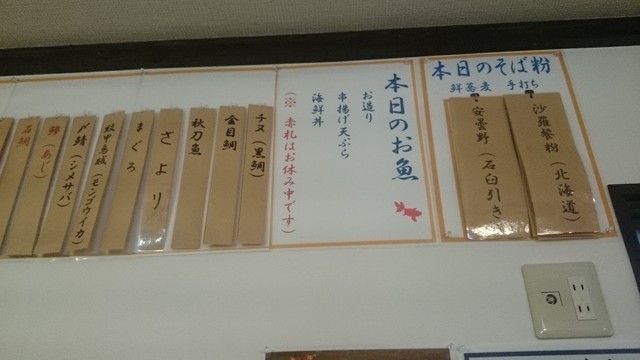 本日のそば粉
鮮蕎麦 手打ち
沙羅餐粉（北海道）
安曇野（石臼引き）
本日のお魚
お造り
串揚げ天ぷら
海鮮丼
（※ 赤札はお休み中です）
チヌ（黒鯛）
金目鯛
秋刀魚
さより
まぐろ
紋甲烏賊（モンゴウイカ）
〆鯖（シメサバ）
鯵（あじ）
石鯛